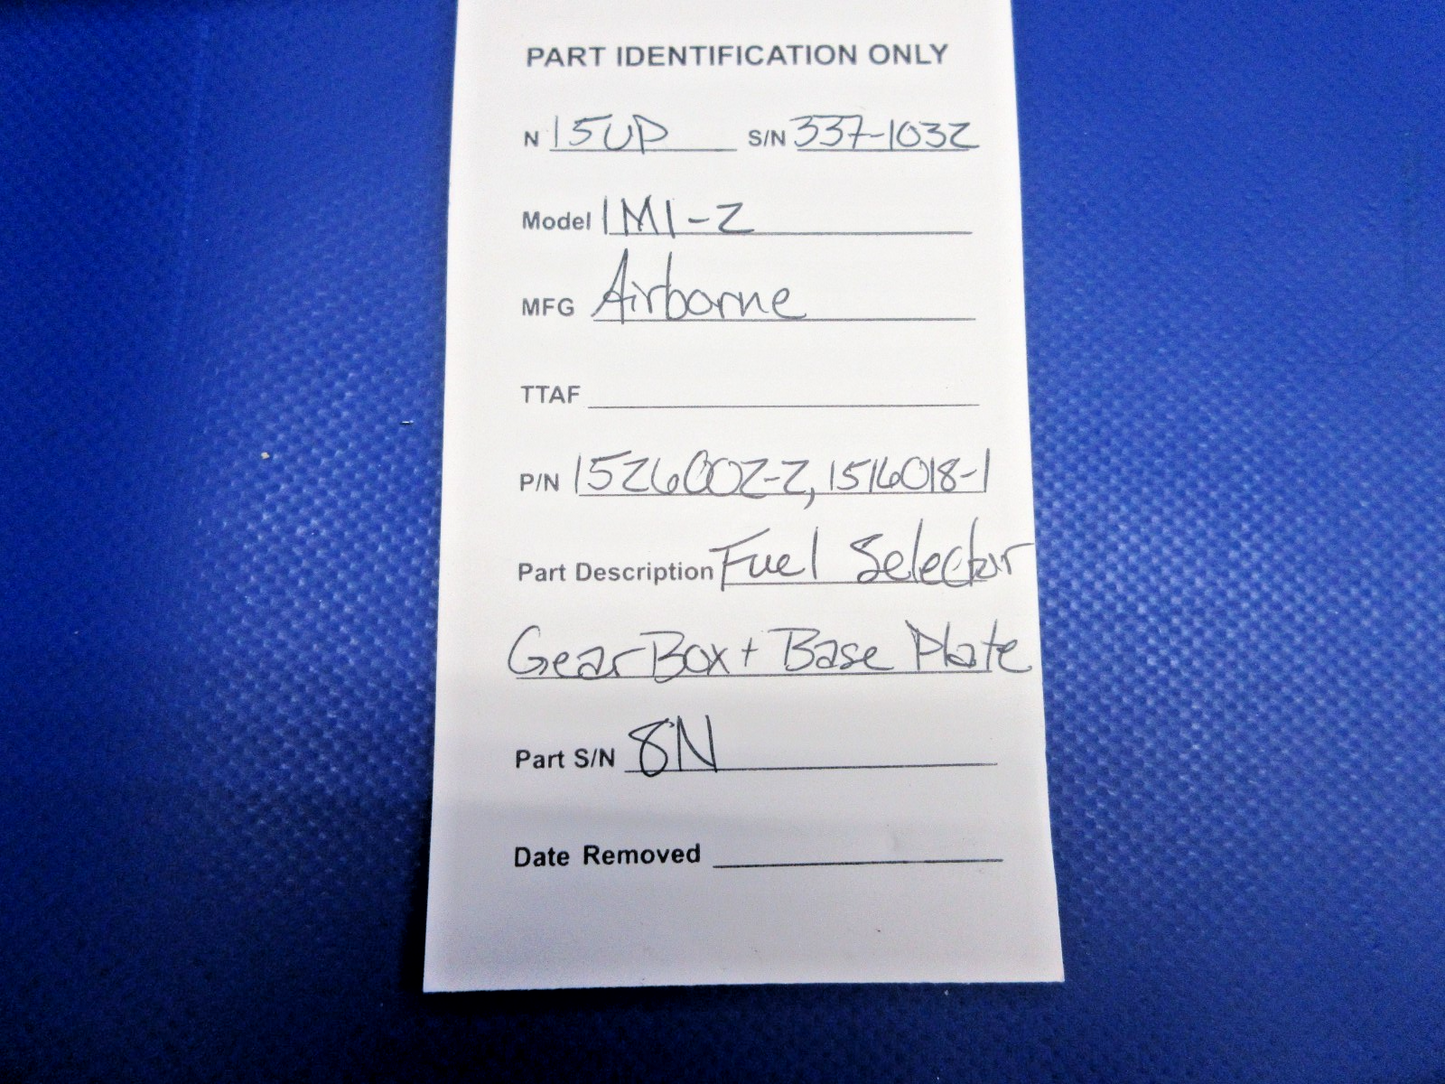 PART IDENTIFICATION ONLY
N 15UP S/N 337-1032
Model 1M1-2
MFG Airborne
TTAF
P/N 1526002-2, 1516018-1
Part Description Fuel Selector
Gear Box + Base Plate
Part S/N 8N
Date Removed